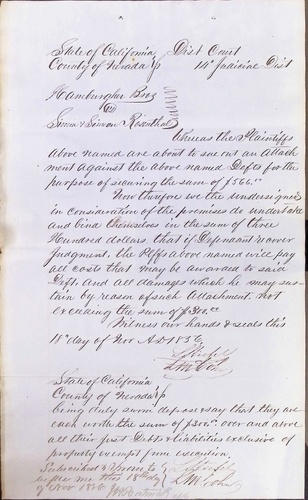 State of California } Dist Court
County of Nevada } ss 14th Judicial Dist
Hamburgher Bros
vs
Simon Rosenthal
Whereas the Plaintiffs
above named are about to sue out an Attach
ment against the above named Defts for the
purpose of securing the sum of $566.00
Now therefore we the undersigned
in consideration of the premises do undertake
and bind themselves in the sum of three
Hundred dollars, that if Defendant recover
Judgment, the Plffs above named will pay
all costs that may be awarded to said
Deft. And all damages which he may sus
tain by reason of such Attachment not
exceeding the sum of $300.00
Witness our hands & seals this
18th day of Nov A.D 1856
State of California
County of Nevada } ss
being duly sworn depose & say that they are
each worth the sum of $300.00 over and above
all their just Debts & liabilities exclusive of
property exempt from execution
Subscribed & Sworn to
before me this 18th day
of Nov 1856